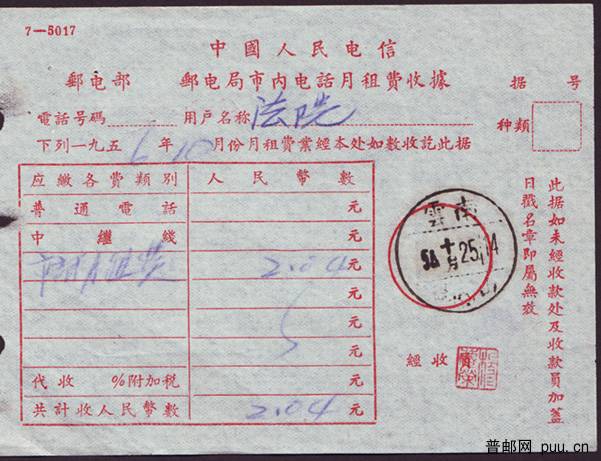 7—5017
中國人民电信
郵电部 郵电局市内电話月租費收據 据 号
電話号碼 用戶名称 法院 种類
下列一九五6年10月份月租費業經本处如數收訖此据
应繳各費類別 人民幣數
普通電話 元
中繼綫 元
月租费 2.04 元
元
元
元
代收 %附加税 元
共計收人民幣數 2.04 元
雲南
十月 25 14
經收
此据如未經收款处及收款員加蓋
日戳名章即屬無效
普邮网 puu.cn